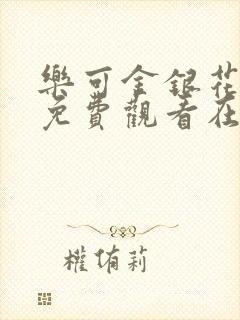 樂可金銀花
免費觀看在
權侑莉